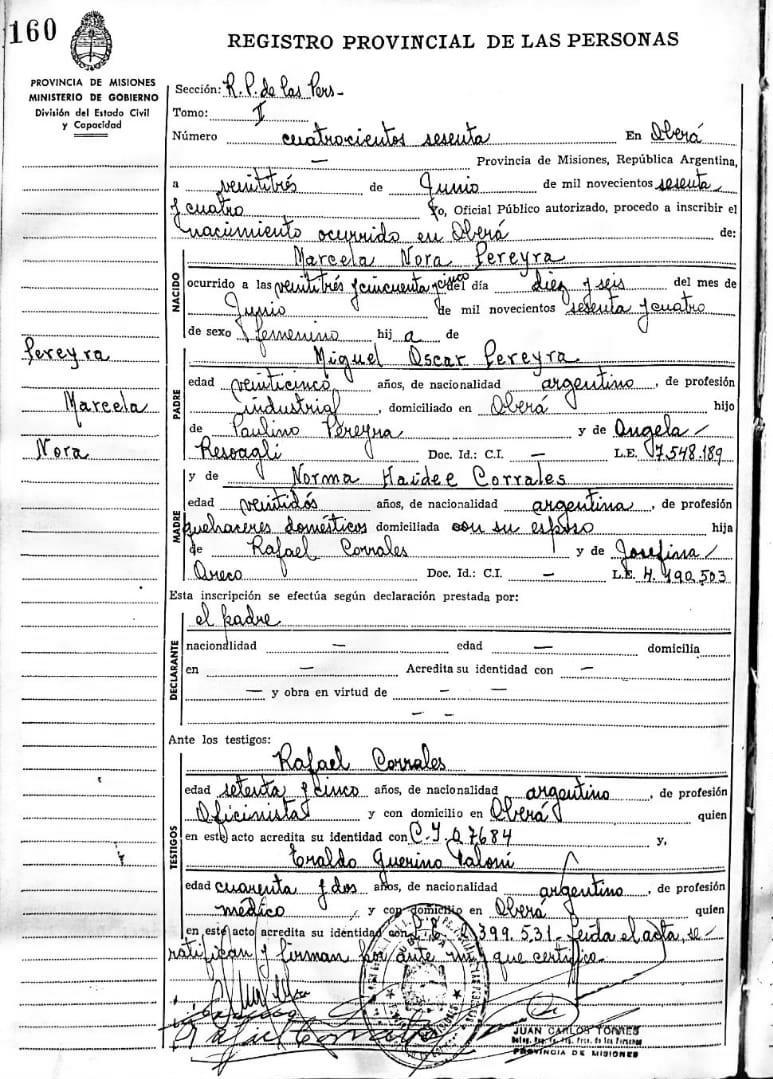 160
REGISTRO PROVINCIAL DE LAS PERSONAS
PROVINCIA DE MISIONES
MINISTERIO DE GOBIERNO
División del Estado Civil
y Capacidad
Sección: R. P. de las Pers-
Tomo: I
Número cuatrocientos sesenta En Oberá
— Provincia de Misiones, República Argentina,
a veintitrés de Junio de mil novecientos sesenta
y cuatro Yo, Oficial Público autorizado, procedo a inscribir el
nacimiento ocurrido en Oberá de:
Marcela Nora Pereyra
NACIDO
ocurrido a las veintitrés y cincuenta y cinco del día diez y seis del mes de
Junio de mil novecientos sesenta y cuatro
de sexo femenino hij a de
Pereyra
Marcela
Nora
Miguel Oscar Pereyra
PADRE
edad veinticinco años, de nacionalidad argentino, de profesión
industrial, domiciliado en Oberá hijo
de Paulino Pereyra y de Angela /
Doc. Id.: C.I. — L.E. 7.548.189
y de Norma Haidee Corrales
MADRE
edad veintidós años, de nacionalidad argentina, de profesión
quehaceres domésticos domiciliada con su esposo hija
de Rafael Corrales y de Josefina /
Oreco Doc. Id.: C.I. — L.E. 4.190.503
Esta inscripción se efectúa según declaración prestada por:
el padre
DECLARANTE
nacionalidad — edad — domicilia
en — Acredita su identidad con —
— y obra en virtud de — —
— —
Ante los testigos:
Rafael Corrales
TESTIGOS
edad setenta y cinco años, de nacionalidad argentino, de profesión
Oficinista y con domicilio en Oberá quien
en este acto acredita su identidad con C.I. 27684 y,
Eraldo Guerino
edad cuarenta y dos años, de nacionalidad argentino, de profesión
medico, y con domicilio en Oberá quien
en este acto acredita su identidad con 399.531- Leída el acta, se /
ratifican y firman por ante mí que certifico-
JUAN CARLOS TORRES
PROVINCIA DE MISIONES